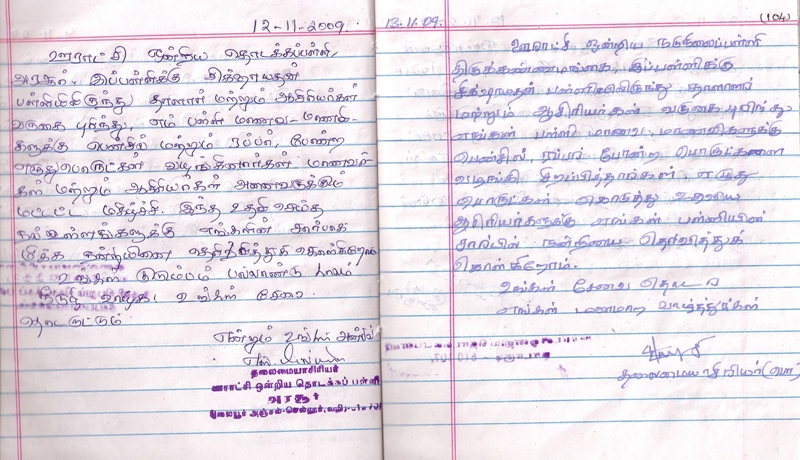 12-11-2009.
ஊராட்சி ஒன்றிய தொடக்கப்பள்ளி,
அரசூர். இப்பள்ளிக்கு சிக்ஷாயதன்
பள்ளியிலிருந்து தாளாளர் மற்றும் ஆசிரியர்கள்
வருகை புரிந்து, எம் பள்ளி மாணவ-மாணவி
களுக்கு பென்சில் மற்றும் ரப்பர், போன்ற
எழுதுபொருட்கள் வழங்கினார்கள் மாணவர்
கள் மற்றும் ஆசிரியர்கள் அனைவருக்கும்
மட்டட்ட மகிழ்ச்சி. இந்த உதவி செய்த
நல்உள்ளங்களுக்கு எங்களின் சார்பாக
மிக்க நன்றியினை தெரிவித்துக் கொள்கிறோம்
உங்கள் குடும்பம் பல்லாண்டு காலம்
வாழ்க. உங்கள் சேவை
தொடரட்டும்
என்றும் உங்கள் அன்புள்
தலைமையாசிரியர்
ஊராட்சி ஒன்றிய தொடக்கப் பள்ளி
அரசூர்
13.11.09.
(104)
ஊராட்சி ஒன்றிய நடுநிலைப்பள்ளி
திருக்கண்ணமங்கை, இப்பள்ளிக்கு
சிக்ஷாயதன் பள்ளியிலிருந்து தாளாளர்
மற்றும் ஆசிரியர்கள் வருகை புரிந்து
எங்கள் பள்ளி மாணவ, மாணவிகளுக்கு
பென்சில், ரப்பர் போன்ற பொருட்களை
வழங்கி சிறப்பித்தார்கள். எழுது
பொருட்கள் கொடுத்து உதவிய
ஆசிரியர்களுக்கு எங்கள் பள்ளியின்
சார்பின் நன்றியை தெரிவித்துக்
கொள்கிறோம்.
உங்கள் சேவை தொடர
எங்கள் மனமார வாழ்த்துக்கள்
தலைமையாசிரியர் (பொ)